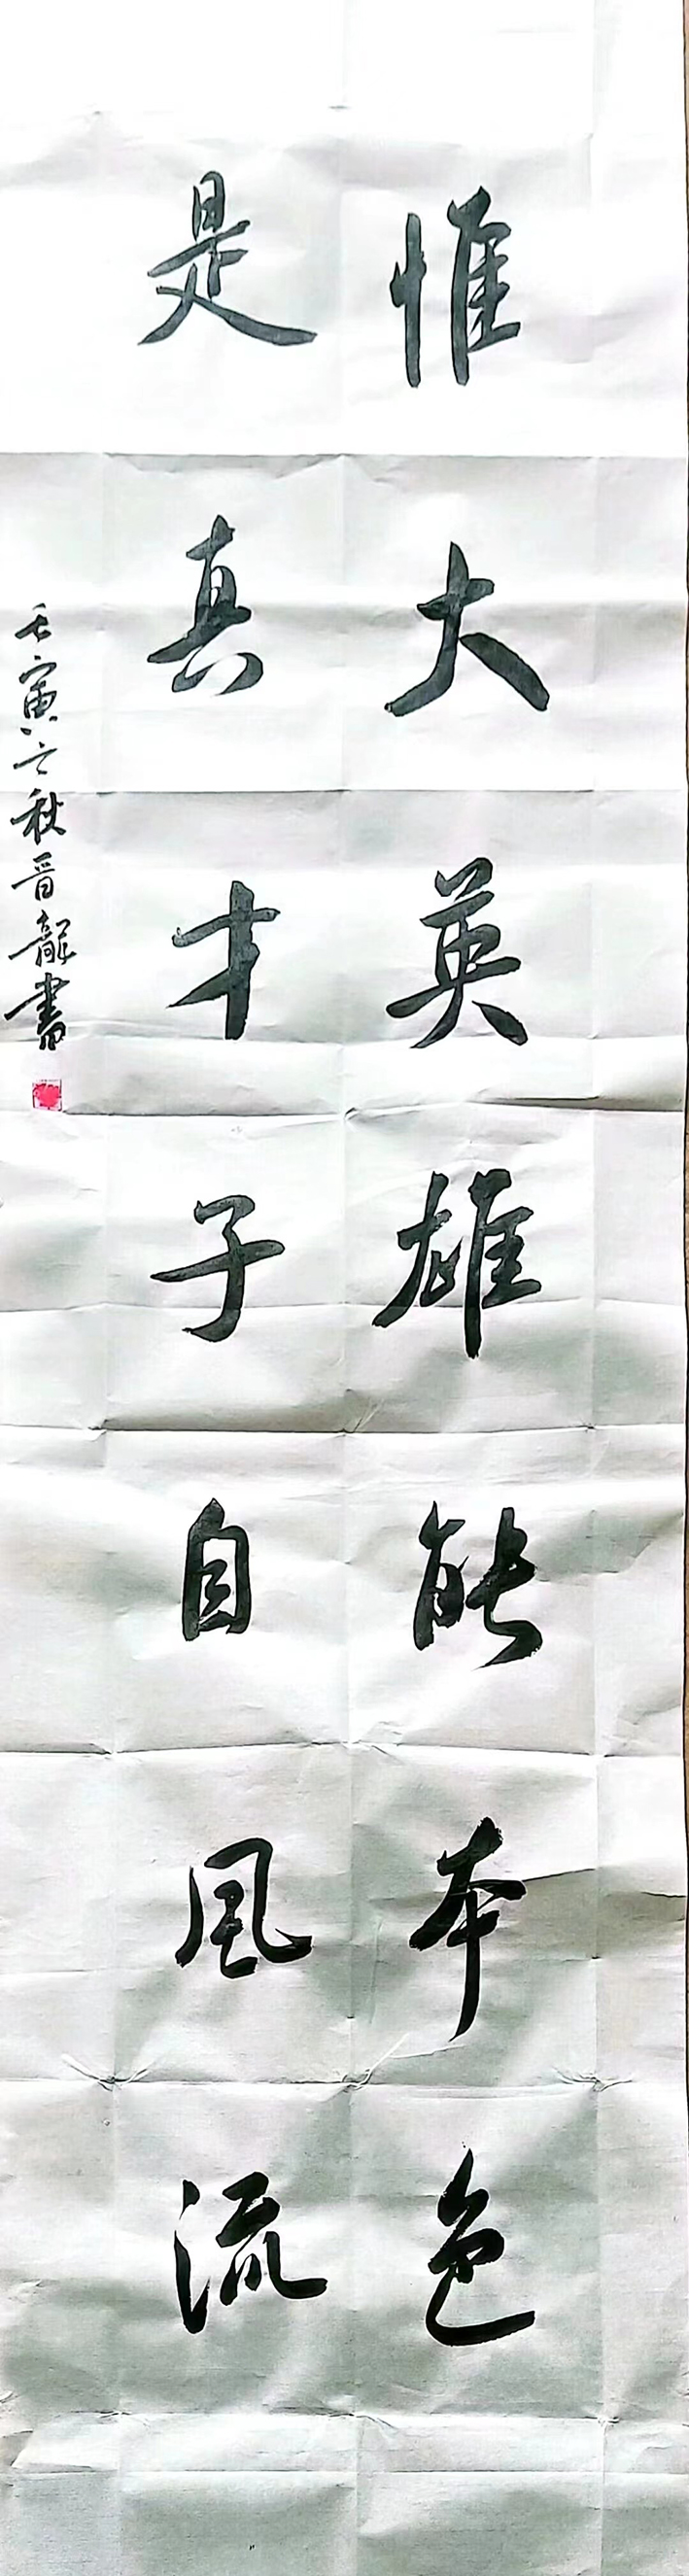 惟大英雄能本色
是真才子自風流
壬寅之秋晋龍書